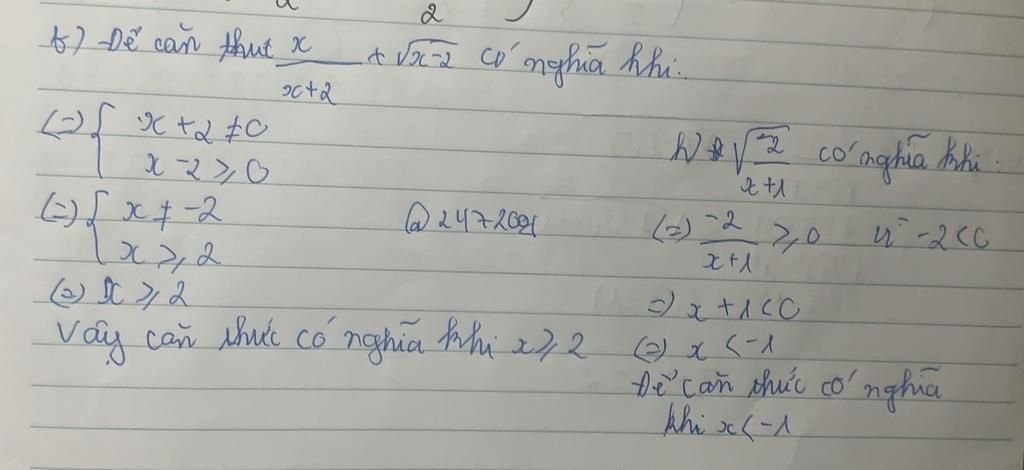 2
b) Để căn thức x/x+2 + √x-2 có nghĩa khi.
(=) { x + 2 ≠ 0
x - 2 ≥ 0
(=) { x ≠ -2
x ≥ 2
(=) x ≥ 2
Vây căn thức có nghĩa khi x ≥ 2
@ 247 2021
h) √-2/x+1 có nghĩa khi.
(=) -2/x+1 ≥ 0 vì -2 < 0
=) x + 1 < 0
(=) x < -1
Để căn thức có nghĩa
khi x < -1